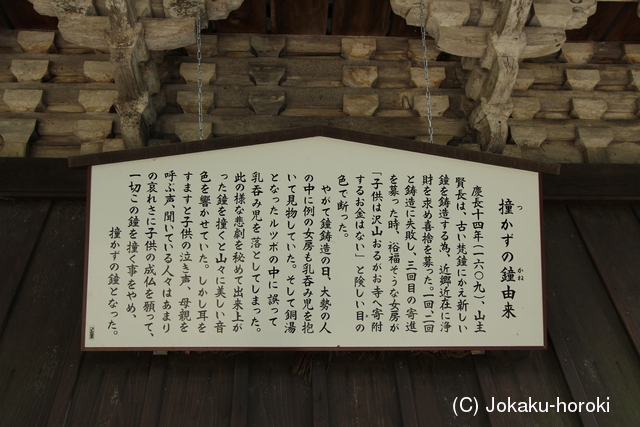 撞かずの鐘由来
つ
かね
慶長十四年(一六〇九)、山主
賢長は、古い梵鐘にかえ新しい
鐘を鋳造する為、近郷近在に浄
財を求め喜捨を募った。一回、二回
と鋳造に失敗し、三回目の寄進
を募った時、裕福そうな女房が
「子供は沢山おるがお寺へ寄附
するお金はない」と険しい目の
色で断った。
やがて鐘鋳造の日、大勢の人
の中に例の女房も乳呑み児を抱
いて見物していた。そして銅湯
となったルツボの中に誤って
乳呑み児を落としてしまった。
此の様な悲劇を秘めて出来上が
った鐘を撞くと山々に美しい音
色を響かせていた。しかし耳を
すますと子供の泣き声、母親を
呼ぶ声、聞いている人々はあまり
の哀れさに子供の成仏を願って、
一切この鐘を撞く事をやめ、
撞かずの鐘となった。
(C) Jokaku-horoki